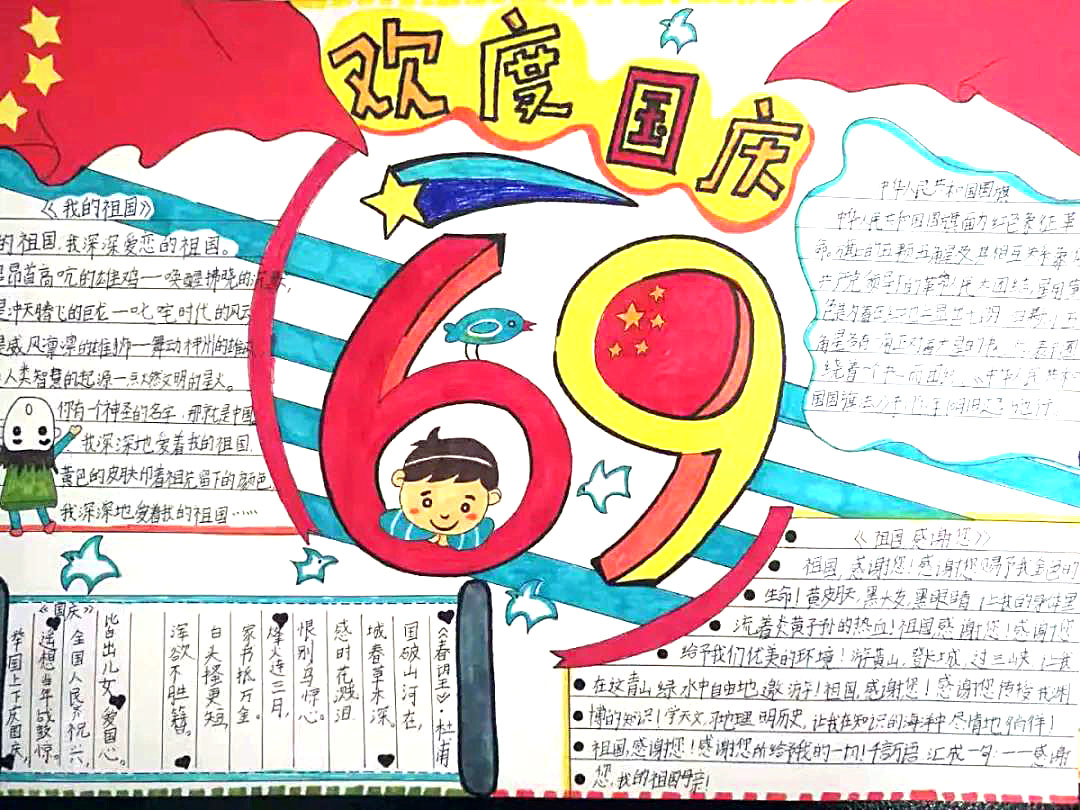 欢度国庆
69
《我的祖国》
的祖国.我深深爱恋的祖国.
昂首高吭的雄鸡一唤醒拂晓的沉默,
冲天腾飞的巨龙一叱咤时代的风云
威风凛凛的雄狮一舞动神州的雄风.
人类智慧的起源一点燃文明的星火。
你有一个神圣的名字,那就是中国
我深深地爱着我的祖国.
黄色的皮肤印着祖先留下的颜色.
我深深地爱着我的祖国……
中华人民共和国国旗
中华人民共和国国旗面为红色象征革
命.旗上的五颗五角星及其相互关系象
共产党领导的革命人民大团结,星用
《祖国感谢您》
祖国,感谢您!感谢您赐予我金色的
生命!黄皮肤,黑大女,黑眼睛 让我的身体里
流着炎黄子孙的热血!祖国感谢您!感谢您
给予我们优美的环境!游黄山,登长城,过三峡 让我
在这青山绿水中自由地遨游!祖国,感谢您!感谢您传授我渊
博的知识!学天文,习地理 明历史,让我在知识的海洋中尽情地徜徉!
祖国,感谢您!感谢您所给予我的一切!千言万语 汇成一句:一一感谢
您,我的祖国母亲!
《春望》·杜甫
国破山河在,
城春草木深。
感时花溅泪
恨别鸟惊心。
烽火连三月,
家书抵万金。
白头搔更短,
浑欲不胜簪。
《国庆》
举国上下庆国庆,
遥想当年战鼓惊。
全国人民齐祝兴,
出儿女爱国心。